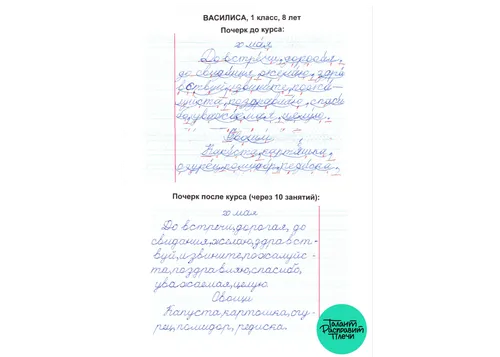 ВАСИЛИСА, 1 класс, 8 лет
Почерк до курса:
20 мая
До встречи, дорогая,
до свидания, желаю, здра
вствуй, извините, пожа-
луйста, поздравляю, спаси
бо, уважаемая, целую.
Овощи
Капуста, картошка,
огурец, помидор, редиска.
Почерк после курса (через 10 занятий):
20 мая
До встречи, дорогая, до
свидания, желаю, здравст-
вуй, извините, пожалуйс-
та, поздравляю, спасибо,
уважаемая, целую
Овощи
Капуста, картошка, огу-
рец, помидор, редиска.
Талант
Расправит
Плечи